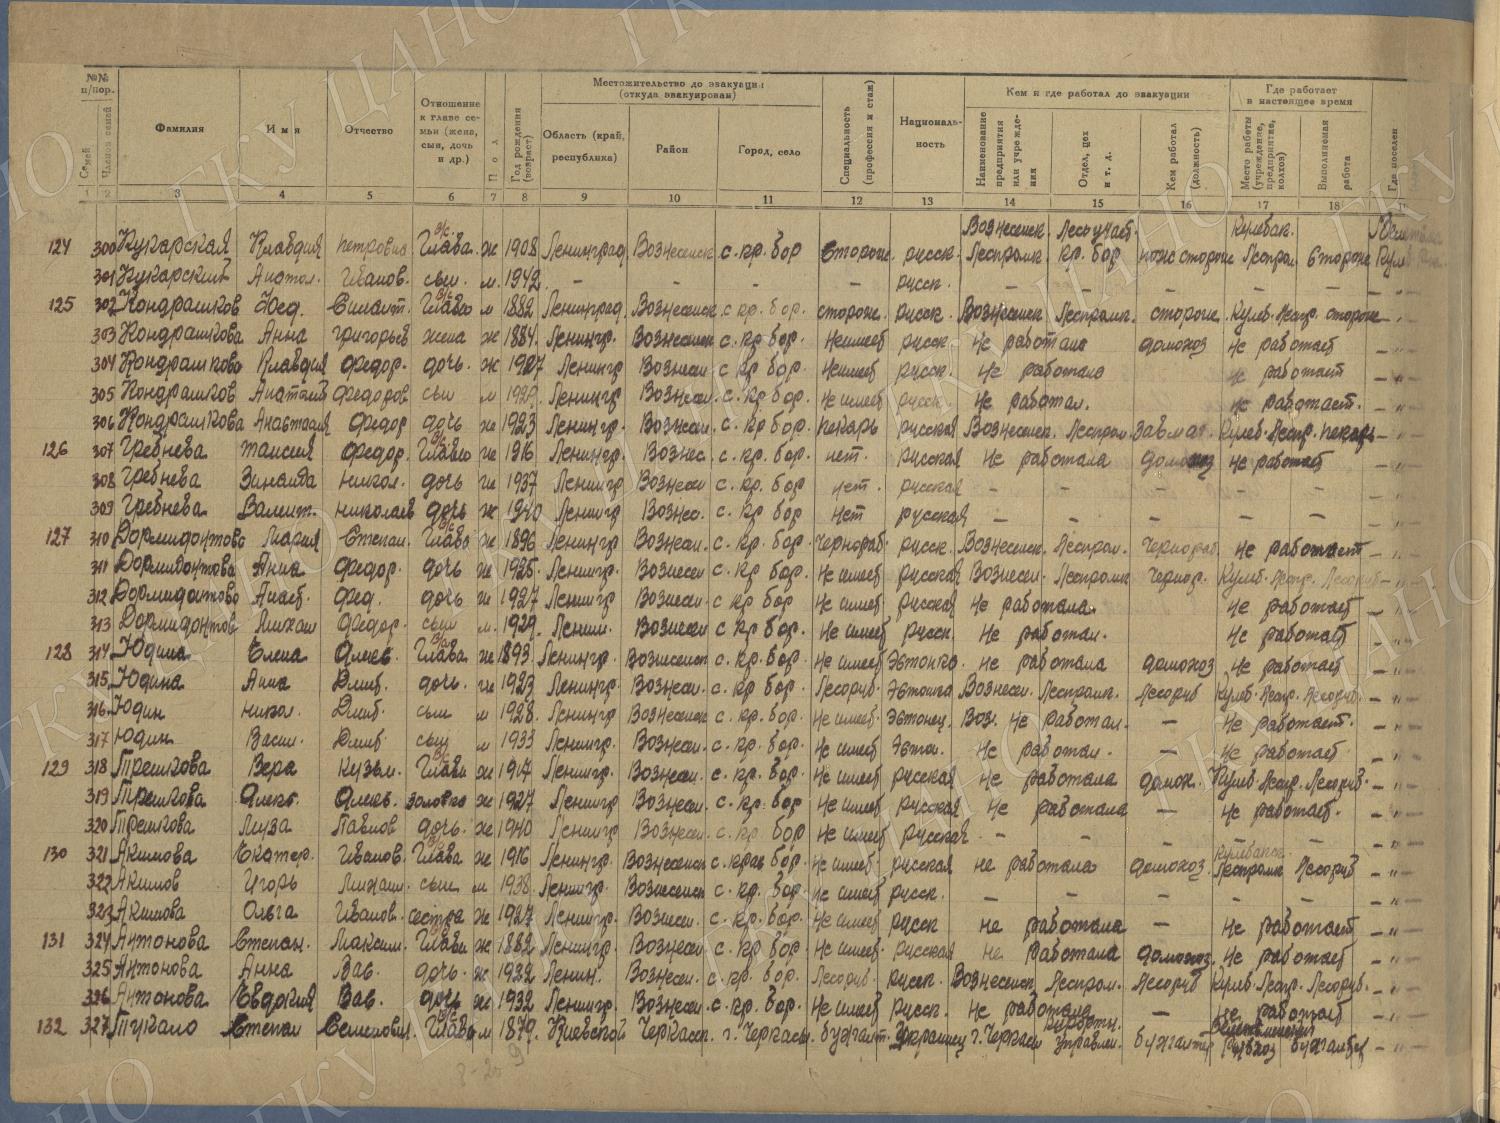 №№ п/пор.
Семей
Членов семей
Фамилия
Имя
Отчество
Отношение к главе семьи (жена, сын, дочь и др.)
Пол
Год рождения (возраст)
Местожительство до эвакуации (откуда эвакуирован)
Область (край, республика)
Район
Город, село
Специальность (профессия и стаж)
Националь-ность
Кем и где работал до эвакуации
Наименование предприятия или учреждения
Отдел, цех и т. д.
Кем работал (должность)
Где работает в настоящее время
Место работы (учреждение, предприятие, колхоз)
Выполняемая работа
Где поселен
1 2 3 4 5 6 7 8 9 10 11 12 13 14 15 16 17 18
Вознесенск. Лесоучаст. Кулебак.
124 300 Кукарская Клавдия Петровна Глава ж 1908 Ленинград Вознесенск с. кр. бор Сторож русск. Леспромх кр. бор пож сторож Леспром Сторож
301 Кукарский Анатол. Иванов. сын. м. 1942 – – – – русск. – – – – –
125 302 Кондрашков Фед. Глава м 1882 Ленинград. Вознесенск с. кр. бор. сторож. русск. Вознесенск Леспромх. сторож Кулеб. Леспр. сторож – " –
303 Кондрашкова Анна Григорьев жена ж 1884. Ленингр. Вознесенск с. кр. бор. Не имеет русск. Не работала домохоз Не работает – " –
304 Кондрашкова Клавдия Федор. дочь. ж 1907 Ленингр Вознесен с. кр. бор. Не имеет русск. Не работала не работает – " –
305 Кондрашков Анатолий Федоров сын м 1929. Ленингр Вознесен. с. кр. бор. Не имеет русск. Не работал. не работает. – " –
306 Кондрашкова Анастасия Федор дочь ж 1923 Ленингр. Вознесен. с. кр. бор. пекарь русская Вознесенск. Леспром Завмаг. Кулеб. Леспр. пекарь – " –
126 307 Гребнева Таисия Федор. Глава ж 1916 Ленингр. Вознес. с. кр. бор. нет. русская Не работала домохоз не работает – " –
308 Гребнева Зинаида Никол. дочь ж 1937 Ленингр Вознесен с. кр. бор нет. русская – – – – – – " –
309 Гребнева Валент. Николаев дочь ж 1940 Ленингр Вознес. с. кр. бор нет русская – – – – – – " –
127 310 Дормидонтова Мария Степан. Глава ж 1896 Ленингр Вознесен. с. кр. бор. Чернораб. русск. Вознесенск. Леспром. Чернораб. не работает – " –
311 Дормидонтова Анна Федор. дочь ж 1925. Ленингр. Вознесен с. кр. бор. Не имеет русская Вознесен. Леспромх Чернор. Кулеб. Леспр. Лесоруб – " –
312 Дормидонтова Анаст. Фед. дочь ж 1927 Ленингр Вознесен. с кр бор Не имеет. русская Не работала. Не работает – " –
313 Дормидонтов Михаил Федор. сын м. 1929. Ленин. Вознесен с кр бор. Не имеет русск. Не работал. Не работает – " –
128 314 Юдина Елена Алекс. Глава ж 1893 Ленингр. Вознесенск с. кр. бор. Не имеет Эстонка. Не работала домохоз Не работает – " –
315 Юдина Анна Дмит. дочь. ж 1923 Ленингр. Вознесен. с. кр бор. Лесоруб. Эстонка Вознесен. Леспромх. Лесоруб Кулеб. Леспр. Лесоруб. – " –
316 Юдин Никол. Дмит. сын м 1928. Ленингр Вознесенск с. кр. бор. Не имеет. Эстонец. Воз. Не работал. – Не работает. – " –
317 Юдин Васил. Дмит сын м 1933 Ленингр. Вознесен. с. кр. бор. Не имеет Эстон. Не работал. – Не работает – " –
129 318 Трешкова Вера Кузьм. Глава ж 1917 Ленингр. Вознесен. с. кр. бор. Не имеет русская Не работала домох. Кулеб. Леспр. Лесоруб. – " –
319 Трешкова Алекс. Алекс. золовка ж 1927 Ленингр Вознесен. с. кр. бор Не имеет русская Не работала – Не работает. – " –
320 Трешкова Муза Павлов дочь. ж 1940 Ленингр Вознесен. с. кр. бор Не имеет русская – – – – – – " –
130 321 Акимова Екатер. Иванов. Глава ж 1916 Ленингр. Вознесенск с. крас бор. Не имеет. русская не работала домохоз. Кулебакск. Леспромх Лесоруб – " –
322 Акимов Игорь Михаил. сын м 1938. Ленингр. Вознесенск с. кр. бор. Не имеет русск. – – – – – – " –
323 Акимова Ольга Иванов. сестра ж 1927 Ленингр. Вознесен. с. кр. бор. Не имеет русск не работала – Не работает – " –
131 324 Антонова Степан. Максим. Глава ж 1882 Ленингр. Вознесен с. кр. бор. Не имеет. русская не работала домохоз. Не работает – " –
325 Антонова Анна Вас. дочь. ж 1922 Ленин. Вознесен. с. кр. бор. Лесоруб. русск. Вознесенск Леспром. Лесоруб Кулеб. Леспр. Лесоруб. – " –
326 Антонова Евдокия Вас. дочь ж 1932 Ленингр. Вознесен с. кр. бор. Не имеет русск. Не работала – не работает – " –
132 327 Тукало Степан Семенович. Глава м 1879. Киевской Черкасск. г. Черкассы бухгалт. Украинец г. Черкассы управлен. бухгалтер бухгалтер – " –
ГКУ ЦАНО